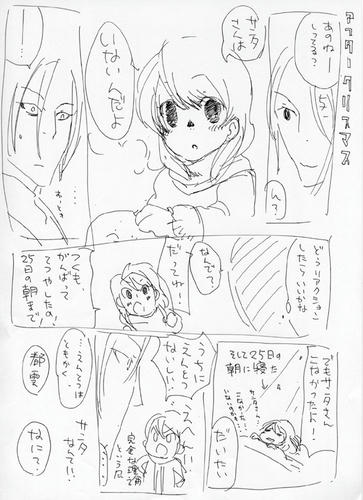 アフタークリスマス
あのねー
しってる?
ん?
サンタ
さんは
いないんだよ
…!
どうリアクション
したらいいかな
なんで?
だってね!
つくも、
がんばって
てつやしたの!
25日の朝まで
でもサンタさん
こなかったよ!
そして25日の
朝に寝た
サンタさん
こなかった…
いないのね…
だいたい
うちに
えんとつ…
ないしい…
完全な理論
という風
…えんとつは
ともかく
サンタ
なら…
都雲
なに?